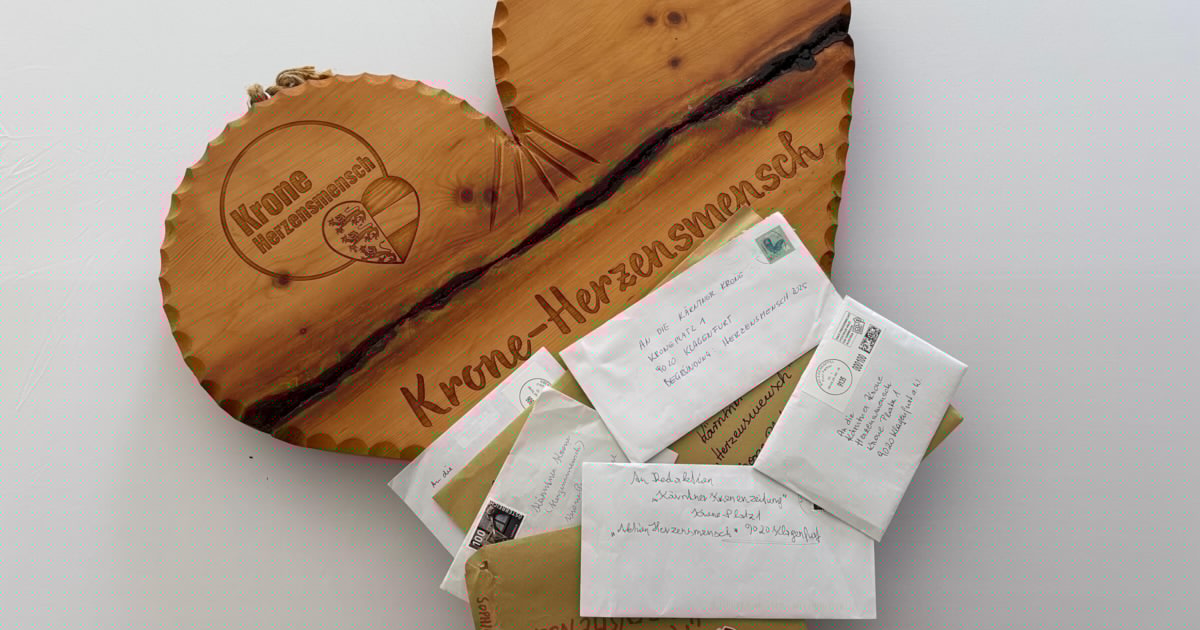 Krone
Herzensmensch
Krone-Herzensmensch
AN DIE KÄRNTNER KRONE
KRONEPLATZ 1
9020 KLAGENFURT
BEGRÜNDUNG: HERZENSMENSCH 2025
An die
Kärntner Krone
Herzensmensch
Krone Platz 1
9020 Klagenfurt a. W.
Kärntner
Herzensmensch
An die
Kärntner Krone
Herzensmensch
100
ÖSTERREICH
An Redaktion
„Kärntner Kronenzeitung"
Krone Platz 1
„Aktion Herzensmensch" 9020 Klagenfurt